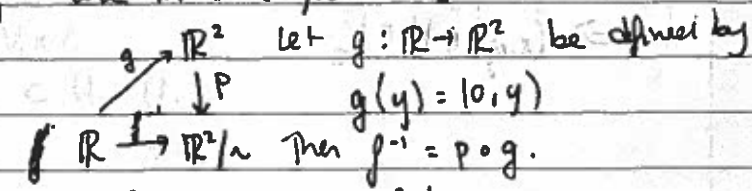 g ℝ² Let g : ℝ → ℝ² be defined by
↓ p g(y) = (0, y)
ℝ → ℝ²/~ Then f⁻¹ = p ∘ g.